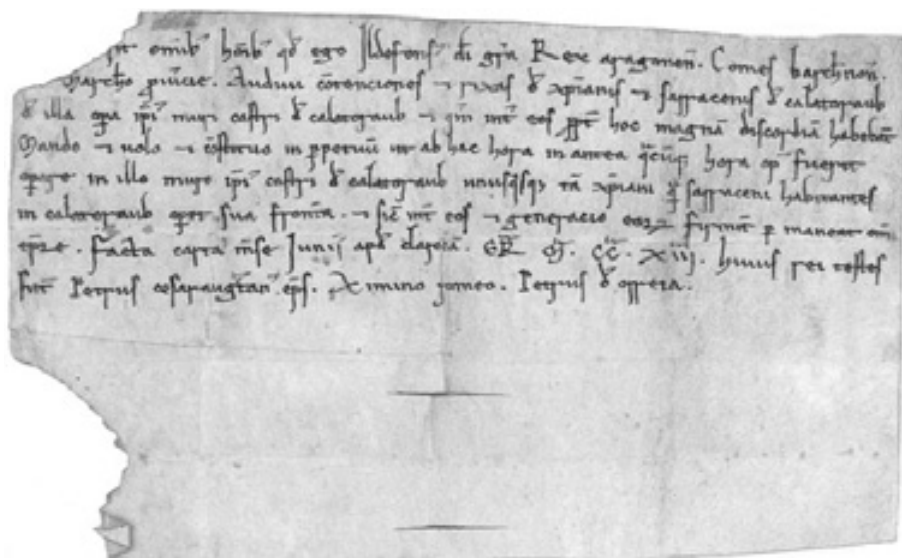 omib' hoib' qd ego Ildefons' di gra Rex aragonen. Comes barchinon.
Marchio puincie. Audivi cotenciones ⁊ rixas d' xpianis ⁊ sarracenis d' calatoraub
d' illa opa ipi' muri castri d' calatoraub ⁊ qm int eos ppt hoc magnā discordiā habebāt
Mando ⁊ volo ⁊ cōstituo in ppetuū ut ab hac hora in antea hora op' fuerit
opare in illo muro ipi' castri d' calatoraub unusqsq; tā xpiani q sarraceni habitantes
in calatoraub opet sua frontā. ⁊ sic int eos ⁊ generacio firmit p maneat
Facta carta mse Junii apd ERA. M. CC. XIII. Huius rei testes
sut Petrus cesaraugtan' eps. Ximino romeo. Petrus d'